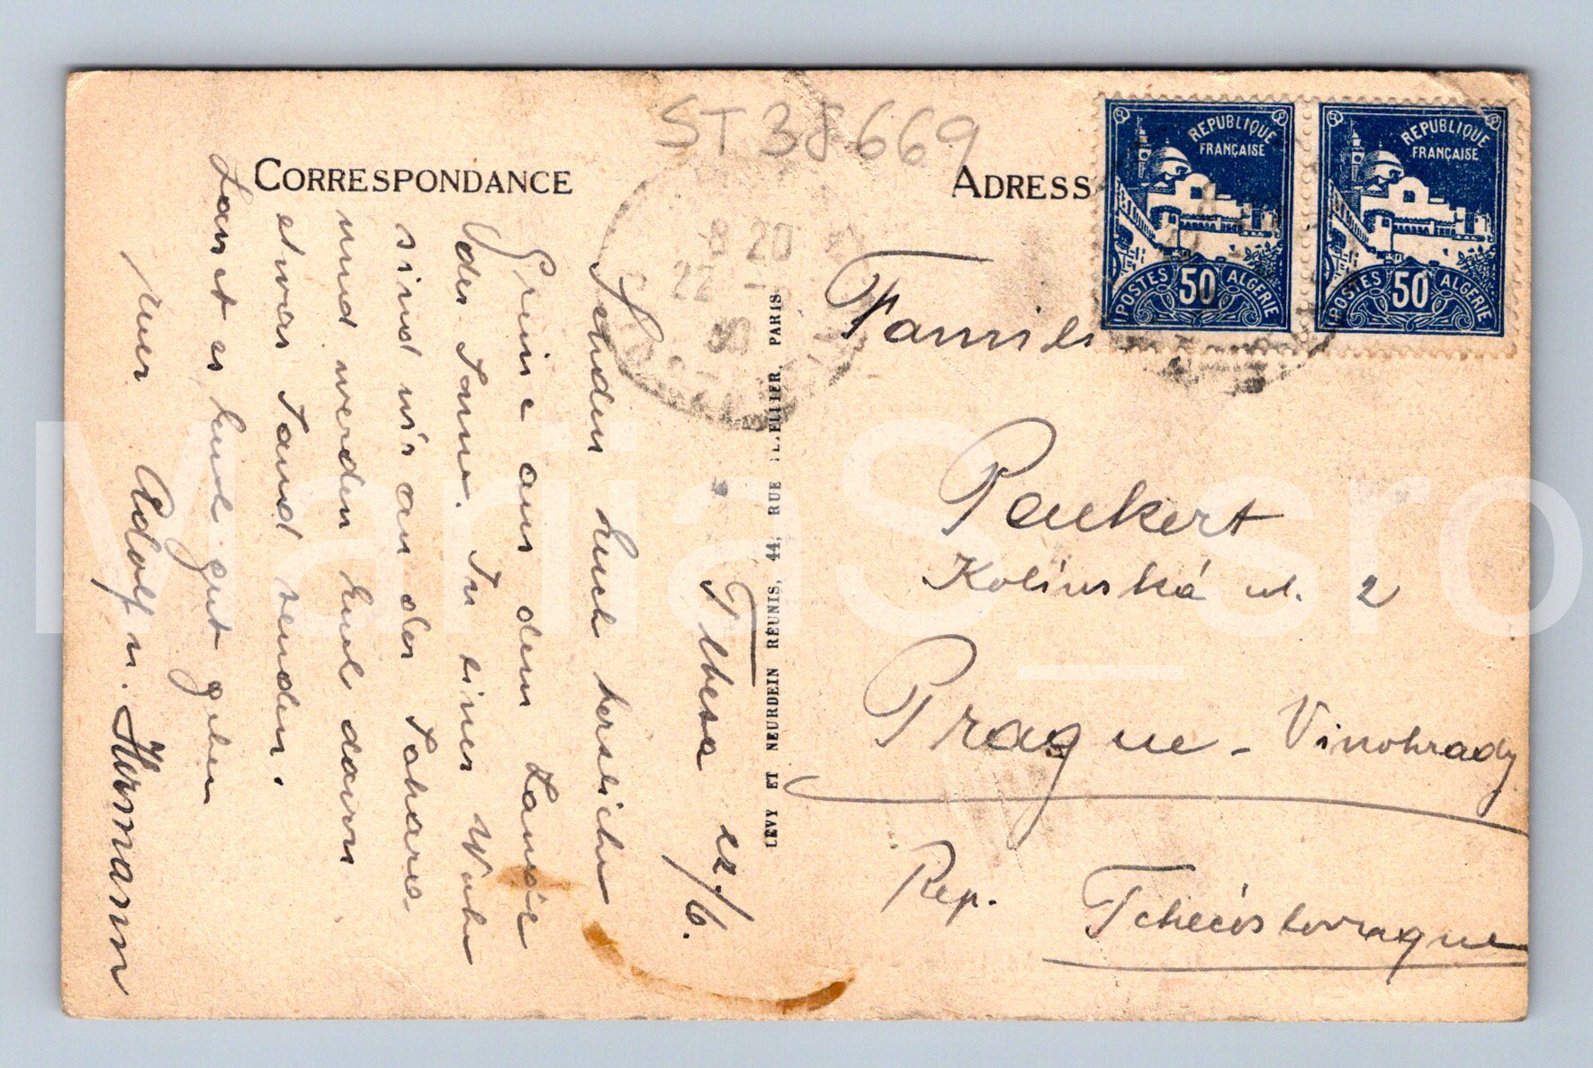 ST 38669
CORRESPONDANCE
ADRESS
REPUBLIQUE
FRANÇAISE
POSTES 50 ALGERIE
REPUBLIQUE
FRANÇAISE
POSTES 50 ALGERIE
8 20
22
30
Tebesa 22./6.
Senden Euch herzliche
Grüsse aus dem Lande
der Sonne. In einer Woche
sind wir an der Sahara
und werden Euch davon
etwas Sand senden.
Lasset es Euch gut gehen
Euer Adolf u. Hermann
LÉVY ET NEURDEIN RÉUNIS, 44, RUE LETELLIER, PARIS
Familie
Paukert
Kolínská ul. 2
Prague - Vinohrady
Rep. Tchécoslovaque
MariaS_sro